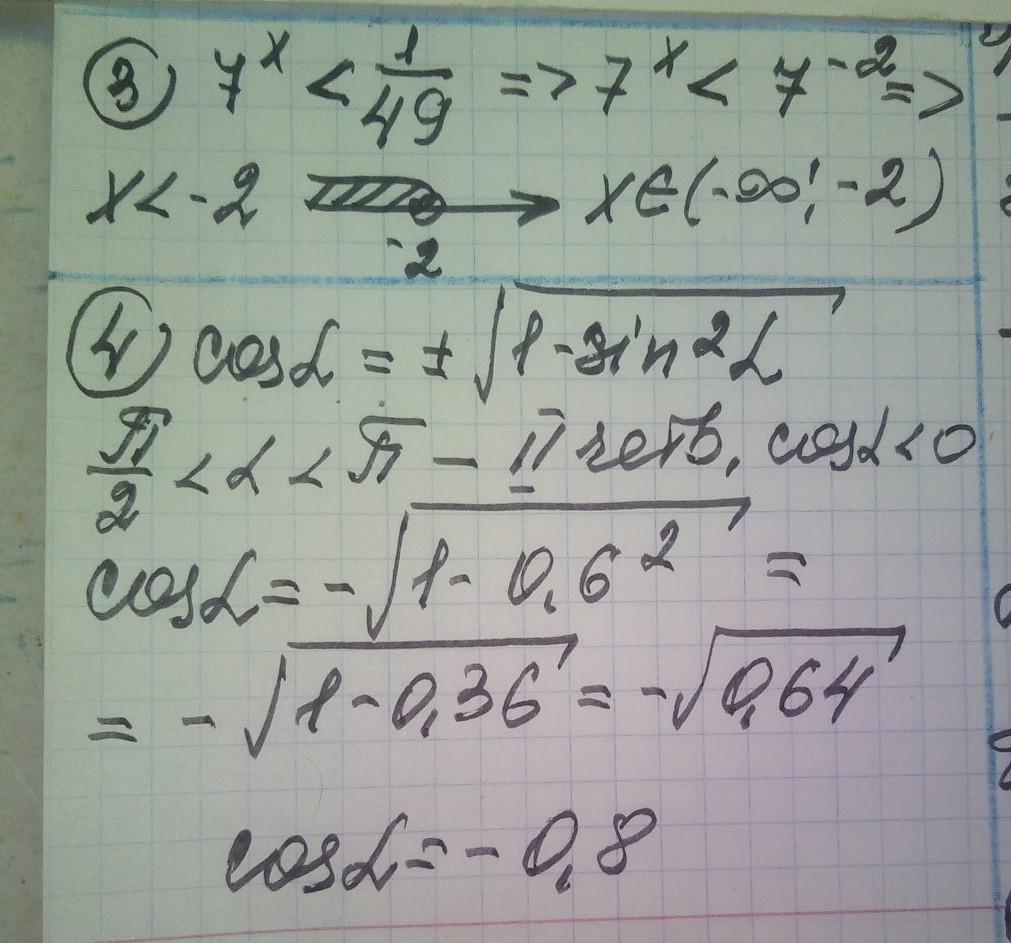 3) 7^x < 1/49 => 7^x < 7^-2 =>
x < -2 -2 x∈(-∞; -2)
4) cosα = ±√(1-sin²α)
π/2 < α < π – II четв, cosα < 0
cosα = -√(1-0,6²) =
= -√(1-0,36) = -√0,64
cosα = -0,8